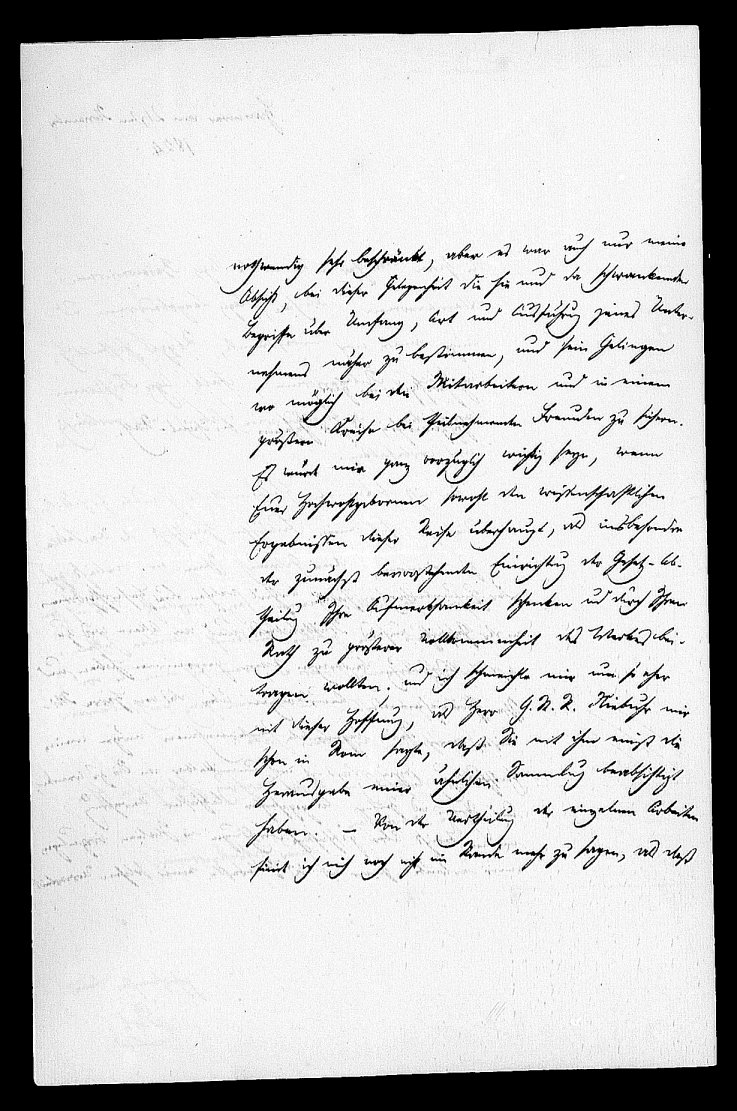 nothwendig sehr beschränkt, aber es war auch nur meine
Absicht, bei dieser Gelegenheit die hie und da schwankenden
Begriffe über Umfang, Art und Ausführung jenes Unter-
nehmens näher zu bestimmen, und sein Gelingen
wo möglich bei den Mitarbeitern und in einem
größern Kreise bei theilnehmenden Freunden zu sichern.
Es würde mir ganz vorzüglich wichtig seyn, wenn
Euer Hochwohlgebornen sowohl den wissenschaftlichen
Ergebnissen dieser Reise überhaupt, als insbesondre
der zunächst bevorstehenden Einrichtung der Gesetz-Ab-
theilung Ihre Aufmerksamkeit schenken und durch Ihren
Rath zu größerer Vollkommenheit des Werkes bei-
tragen wollten; und ich schmeichle mir um so eher
mit dieser Hoffnung, als Herr G. St. R. Niebuhr mir
schon in Rom sagte, daß Sie mit ihm einst die
Herausgabe einer ähnlichen Sammlung beabsichtigt
haben. — Von der Vertheilung der einzelnen Arbeiten
bin ich noch nicht im Stande mehr zu sagen, als daß